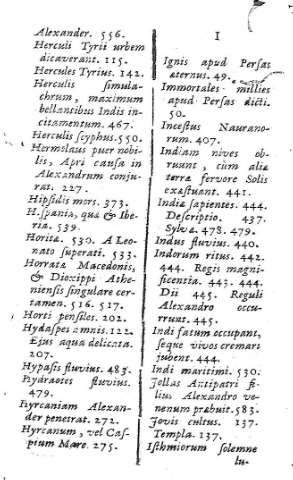 Alexander. 556.
Herculi Tyrii urbem
dicaverant. 115.
Hercules Tyrius. 142.
Herculis simula-
chrum, maximum
bellantibus Indis in-
citamentum. 467.
Herculis scyphus. 550.
Hermolaus puer nobi-
lis, Apri causa in
Alexandrum conju-
rat. 227.
Hipsidis mors. 373.
Hispania, qua & Ibe-
ria. 539.
Horitæ. 530. A Leo-
nato superati. 533.
Horrata Macedonis,
& Dioxippi Athe-
niensis singulare cer-
tamen. 516. 517.
Horti pensiles. 202.
Hydaspes amnis. 122.
Ejus aqua delicata.
207.
Hypasis fluvius. 483.
Hydraotes fluvius.
479.
Hyrcaniam Alexan-
der penetrat. 272.
Hyrcanum, vel Cas-
pium Mare. 275.
I
Ignis apud Persas
æternus. 49.
Immortales millies
apud Persas dicti.
50.
Incestus Naurano-
rum. 407.
Indiam nives ob-
ruunt, cum aliæ
terræ fervore Solis
exæstuant. 441.
Indiæ sapientes. 444.
Descriptio. 437.
Sylvæ. 478. 479.
Indus fluvius. 440.
Indorum ritus. 442.
444. Regis magni-
ficentia. 443. 444.
Dii 445. Reguli
Alexandro occu-
rrunt. 445.
Indi fatum occupant,
seque vivos cremari
jubent. 444.
Indi maritimi. 530.
Jollas Antipatri fi-
lius Alexandro ve-
nenum præbuit. 583.
Jovis cultus. 137.
Templa. 137.
Isthmiorum solemne
lu-